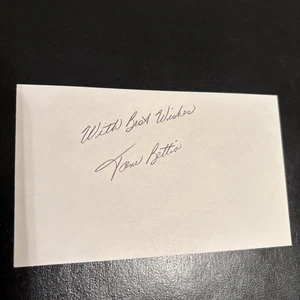 With Best Wishes
Tom Bettis